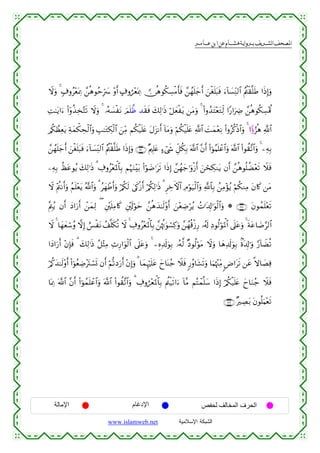 المصحف الشريف برواية هشام عن ابن عامر
وَإِذَا طَلَّقْتُمُ ٱلنِّسَآءَ فَبَلَغْنَ أَجَلَهُنَّ فَأَمْسِكُوهُنَّ بِمَعْرُوفٍ أَوْ سَرِّحُوهُنَّ بِمَعْرُوفٍۚ وَلَا
تُمْسِكُوهُنَّ ضِرَارًا لِّتَعْتَدُوا۟ۚ وَمَن يَفْعَلْ ذَٰلِكَ فَقَد ظَّلَمَ نَفْسَهُۥۚ وَلَا تَتَّخِذُوٓا۟ ءَايَٰتِ
ٱللَّهِ هُزُؤًاۚ وَٱذْكُرُوا۟ نِعْمَتَ ٱللَّهِ عَلَيْكُمْ وَمَآ أَنزَلَ عَلَيْكُم مِّنَ ٱلْكِتَٰبِ وَٱلْحِكْمَةِ يَعِظُكُم
بِهِۦۚ وَٱتَّقُوا۟ ٱللَّهَ وَٱعْلَمُوٓا۟ أَنَّ ٱللَّهَ بِكُلِّ شَىْءٍ عَلِيمٌ وَإِذَا طَلَّقْتُمُ ٱلنِّسَآءَ فَبَلَغْنَ أَجَلَهُنَّ
فَلَا تَعْضُلُوهُنَّ أَن يَنكِحْنَ أَزْوَٰجَهُنَّ إِذَا تَرَٰضَوْا۟ بَيْنَهُم بِٱلْمَعْرُوفِۗ ذَٰلِكَ يُوعَظُ بِهِۦ
مَن كَانَ مِنكُمْ يُؤْمِنُ بِٱللَّهِ وَٱلْيَوْمِ ٱلْـَٔاخِرِۗ ذَٰلِكُمْ أَزْكَىٰ لَكُمْ وَأَطْهَرُۗ وَٱللَّهُ يَعْلَمُ وَأَنتُمْ لَا
تَعْلَمُونَ ۞ وَٱلْوَٰلِدَٰتُ يُرْضِعْنَ أَوْلَٰدَهُنَّ حَوْلَيْنِ كَامِلَيْنِۖ لِمَنْ أَرَادَ أَن يُتِمَّ
ٱلرَّضَاعَةَۚ وَعَلَى ٱلْمَوْلُودِ لَهُۥ رِزْقُهُنَّ وَكِسْوَتُهُنَّ بِٱلْمَعْرُوفِۚ لَا تُكَلَّفُ نَفْسٌ إِلَّا وُسْعَهَاۚ لَا
تُضَآرَّ وَٰلِدَةٌۢ بِوَلَدِهَا وَلَا مَوْلُودٌ لَّهُۥ بِوَلَدِهِۦۚ وَعَلَى ٱلْوَارِثِ مِثْلُ ذَٰلِكَۗ فَإِنْ أَرَادَا
فِصَالًا عَن تَرَاضٍ مِّنْهُمَا وَتَشَاوُرٍ فَلَا جُنَاحَ عَلَيْهِمَاۗ وَإِنْ أَرَدتُّمْ أَن تَسْتَرْضِعُوٓا۟ أَوْلَٰدَكُمْ
فَلَا جُنَاحَ عَلَيْكُمْ إِذَا سَلَّمْتُم مَّآ ءَاتَيْتُم بِٱلْمَعْرُوفِۗ وَٱتَّقُوا۟ ٱللَّهَ وَٱعْلَمُوٓا۟ أَنَّ ٱللَّهَ بِمَا
تَعْمَلُونَ بَصِيرٌ
الحرف المخالف لحفص الإدغام الإمالة
الشبكة الإسلامية www.islamweb.net